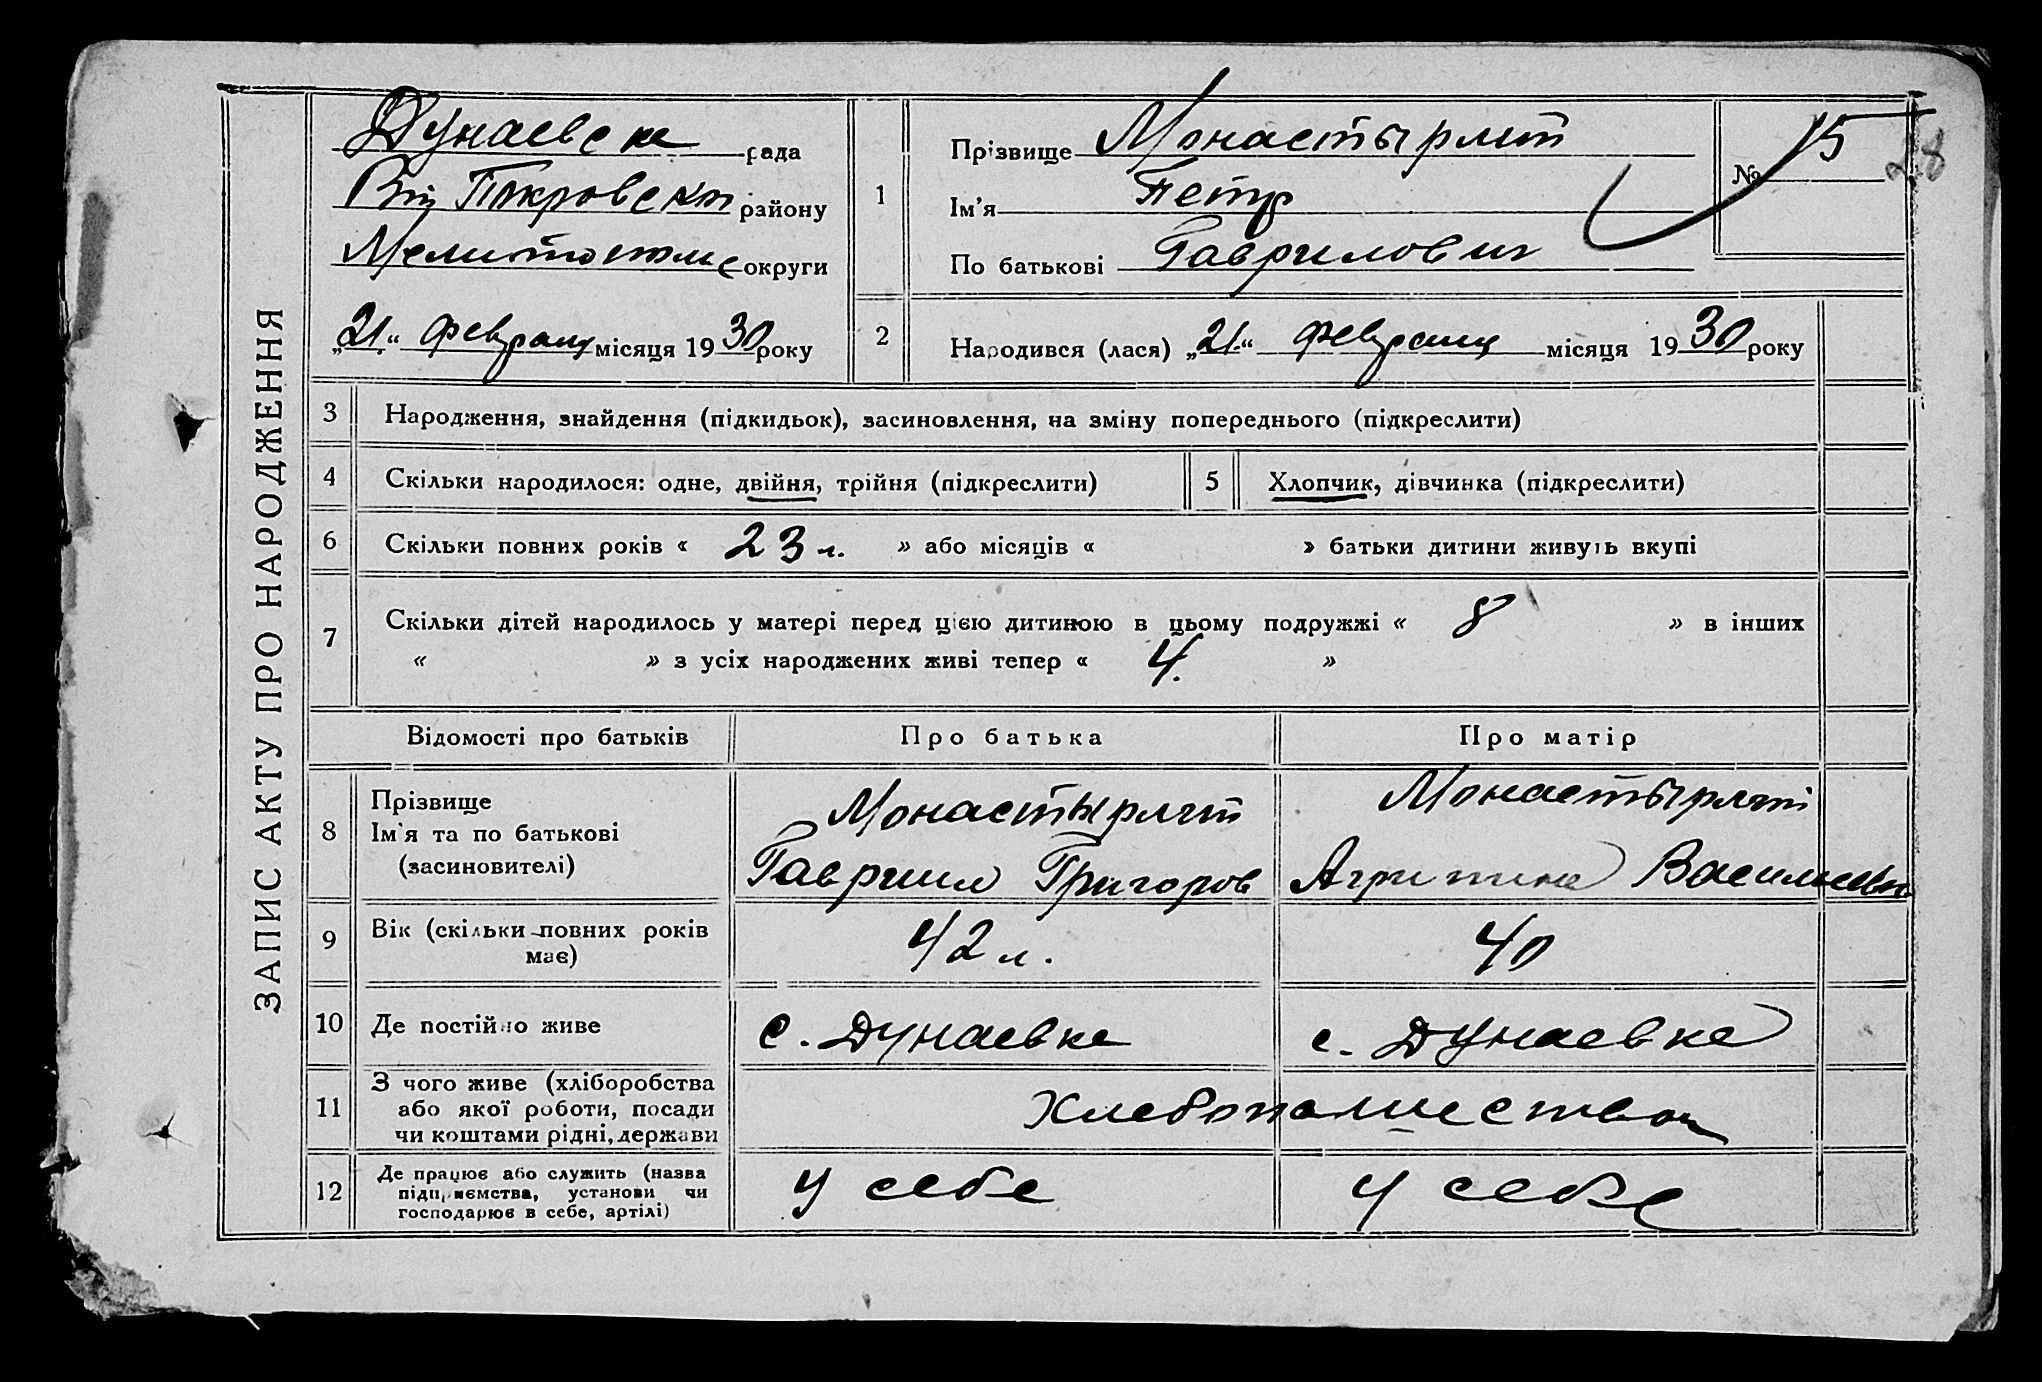 ЗАПИС АКТУ ПРО НАРОДЖЕННЯ
Дунаевска рада
Покровски району
Мелитопольс округи
„21“ февраля місяця 1930 року
1
Прізвище Монастырлит
Ім'я Петр
По батькові Гаврилович
№ 15
28
2
Народився (лася) „21“ февраля місяця 1930 року
3 Народження, знайдення (підкидьок), засиновлення, на зміну попереднього (підкреслити)
4 Скільки народилося: одне, двійня, трійня (підкреслити)
5 Хлопчик, дівчинка (підкреслити)
6 Скільки повних років « 23 л. » або місяців « » батьки дитини живуть вкупі
7 Скільки дітей народилось у матері перед цією дитиною в цьому подружжі « 8 » в інших
« » з усіх народжених живі тепер « 4. »
Відомості про батьків Про батька Про матір
8
Прізвище
Ім'я та по батькові
(засиновителі)
Монастырлит
Гавриил Григоров
Монастырлит
Агрипина Васильевн
9 Вік (скільки повних років
має)
42 л. 40
10 Де постійно живе с. Дунаевка с. Дунаевка
11 З чого живе (хліборобства
або якої роботи, посади
чи коштами рідні, держави
Хлебопашеством
12 Де працює або служить (назва
підприємства, установи чи
господарює в себе, артілі)
у себе у себе